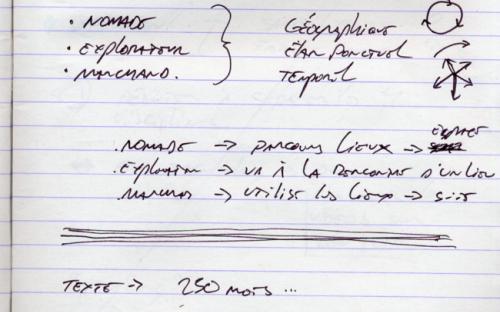 • NOMADE } Géographique
• EXPLORATEUR } Élan Ponctuel
• MARCHAND. } Temporel
. NOMADE → parcours lieux → ESPACES
. EXPLORATEUR → VA À LA RENCONTRE D'UN LIEU
. MARCHAND → utilise les lieux →
TEXTE → 250 MOTS ...